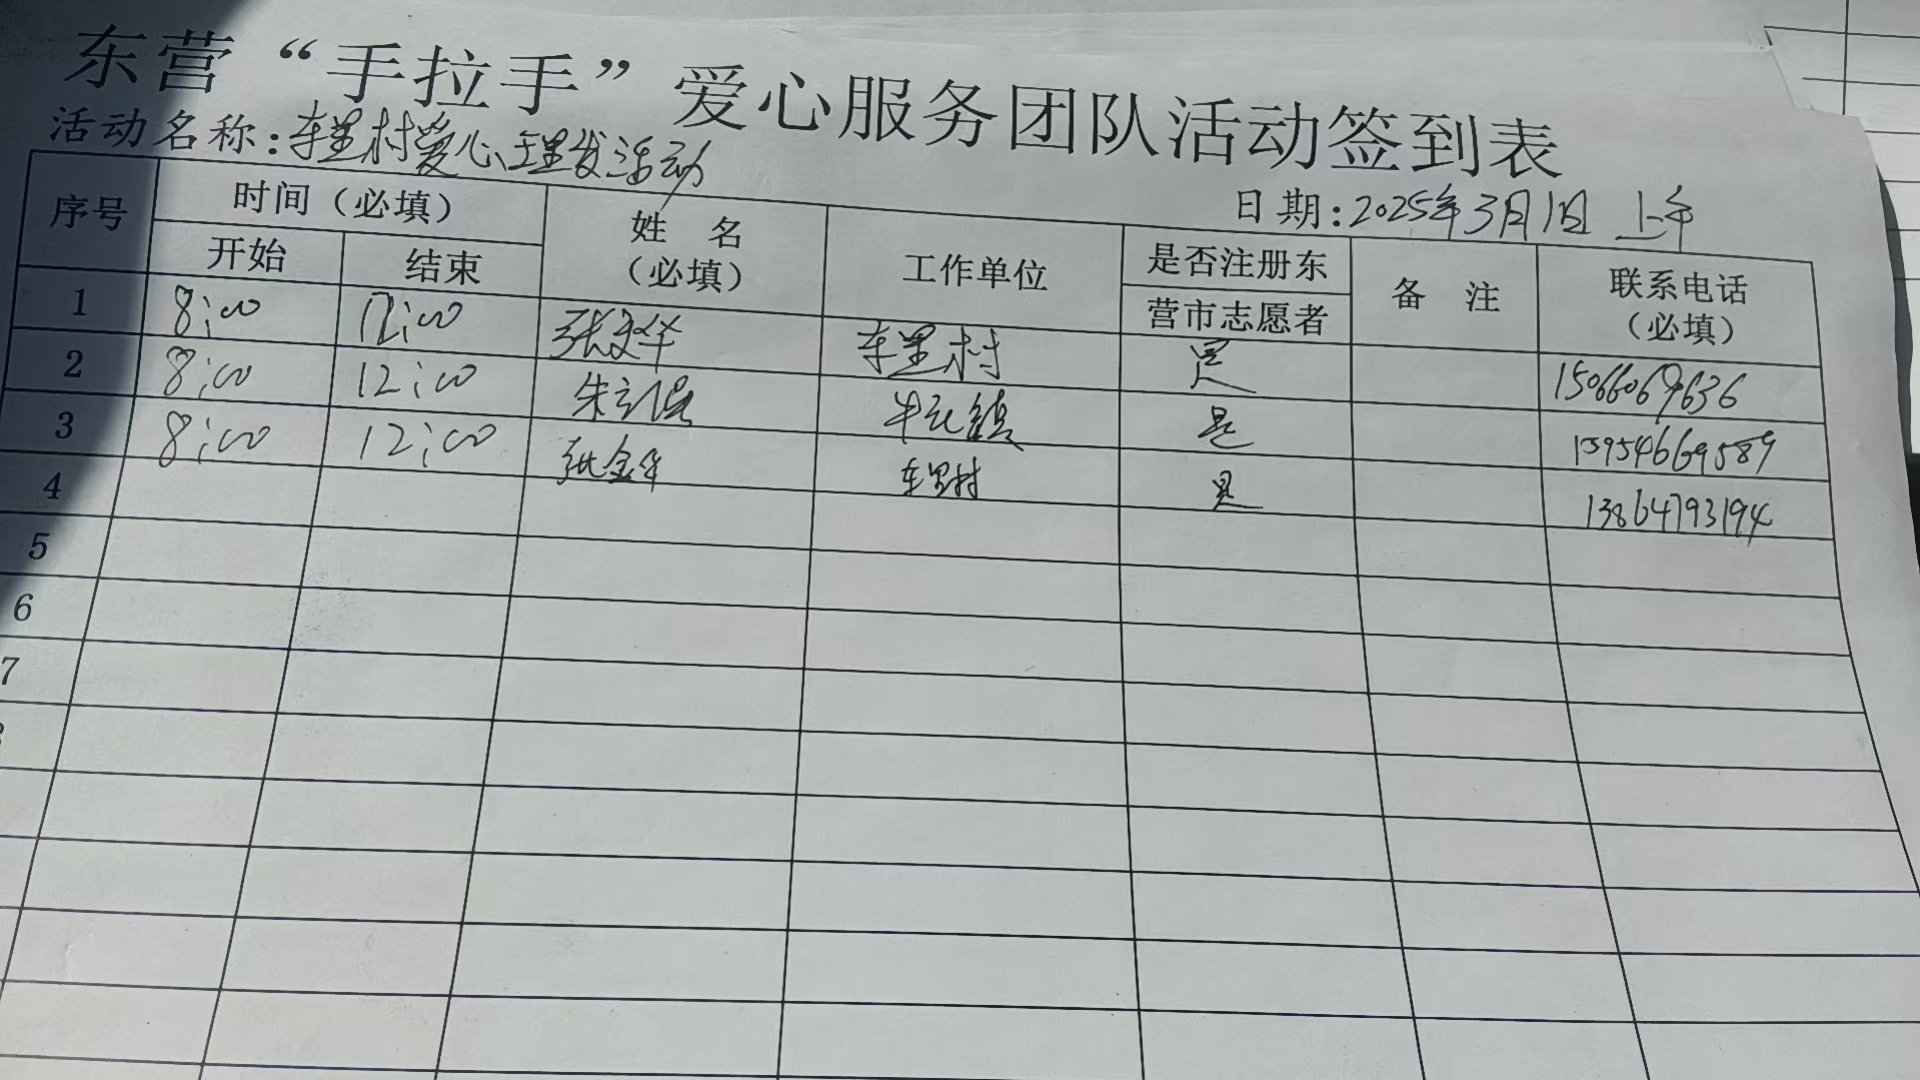 东营“手拉手”爱心服务团队活动签到表
活动名称：车里村爱心理发活动
日期：2025年3月1日 上午
序号 时间（必填） 姓 名（必填） 工作单位 是否注册东营市志愿者 备 注 联系电话（必填）
开始 结束
1 8:00 12:00 张文华 车里村 是 15066069636
2 8:00 12:00 朱 车镇 是 13954669589
3 8:00 12:00 张金 车里村 是 13864793194
4
5
6
7